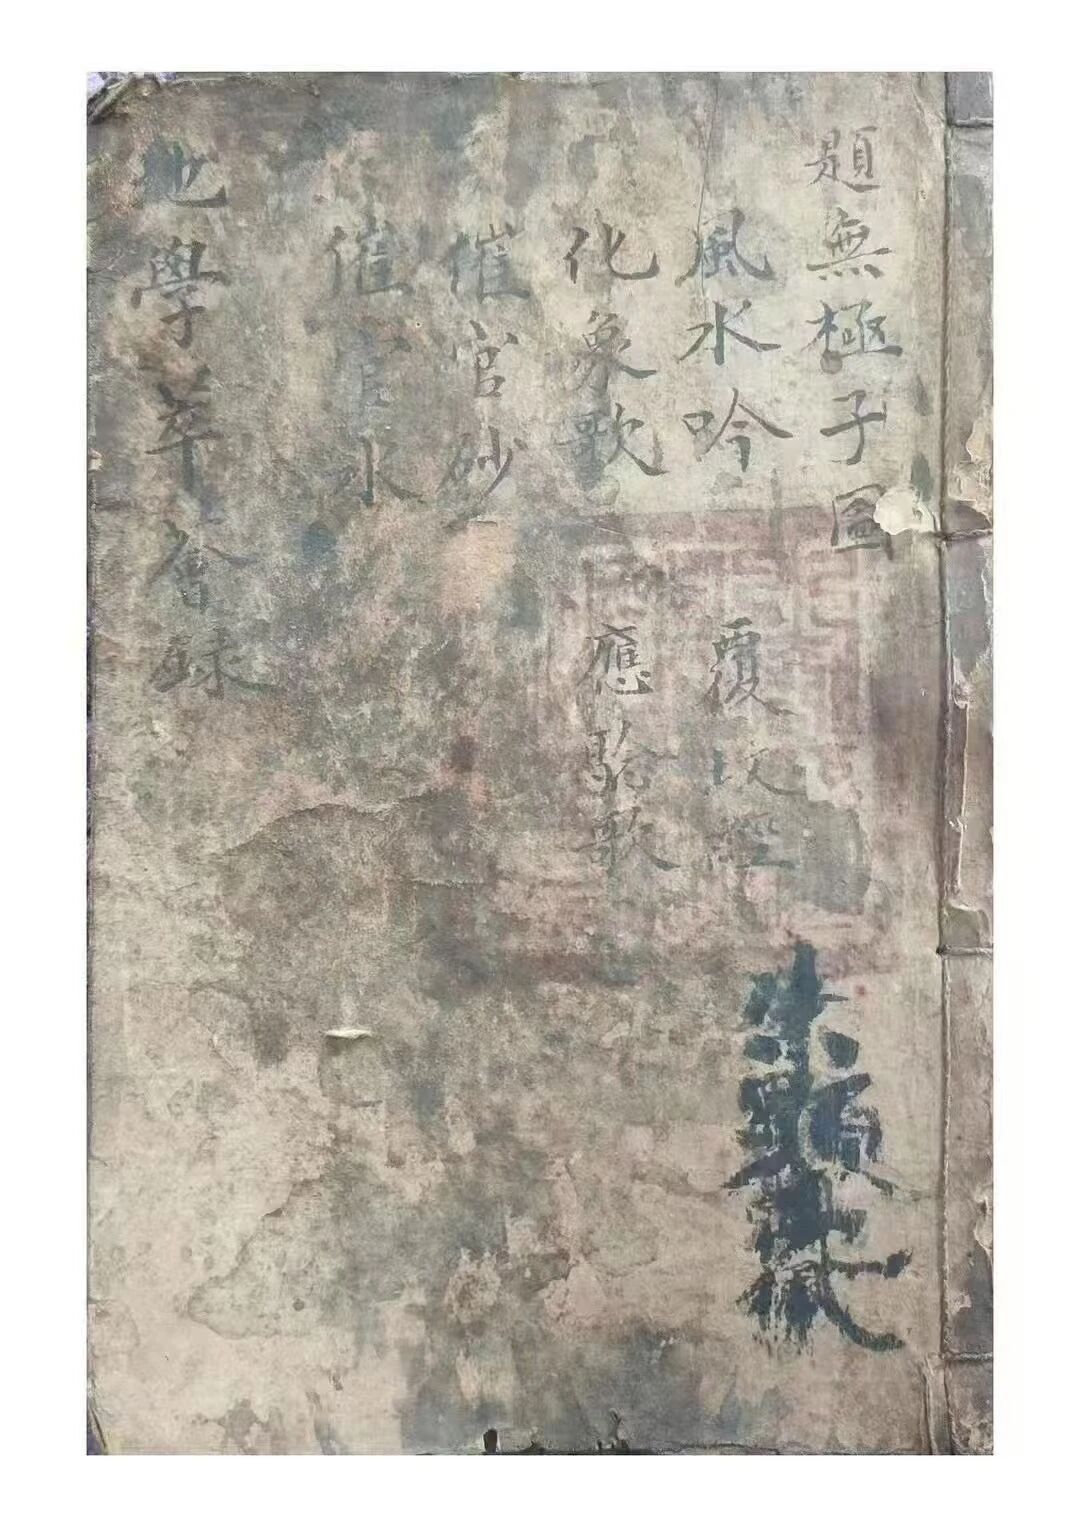 題無極子圖
風水吟
覆坟經
化象歌
應驗歌
催官砂
催官水
地學萃會錄